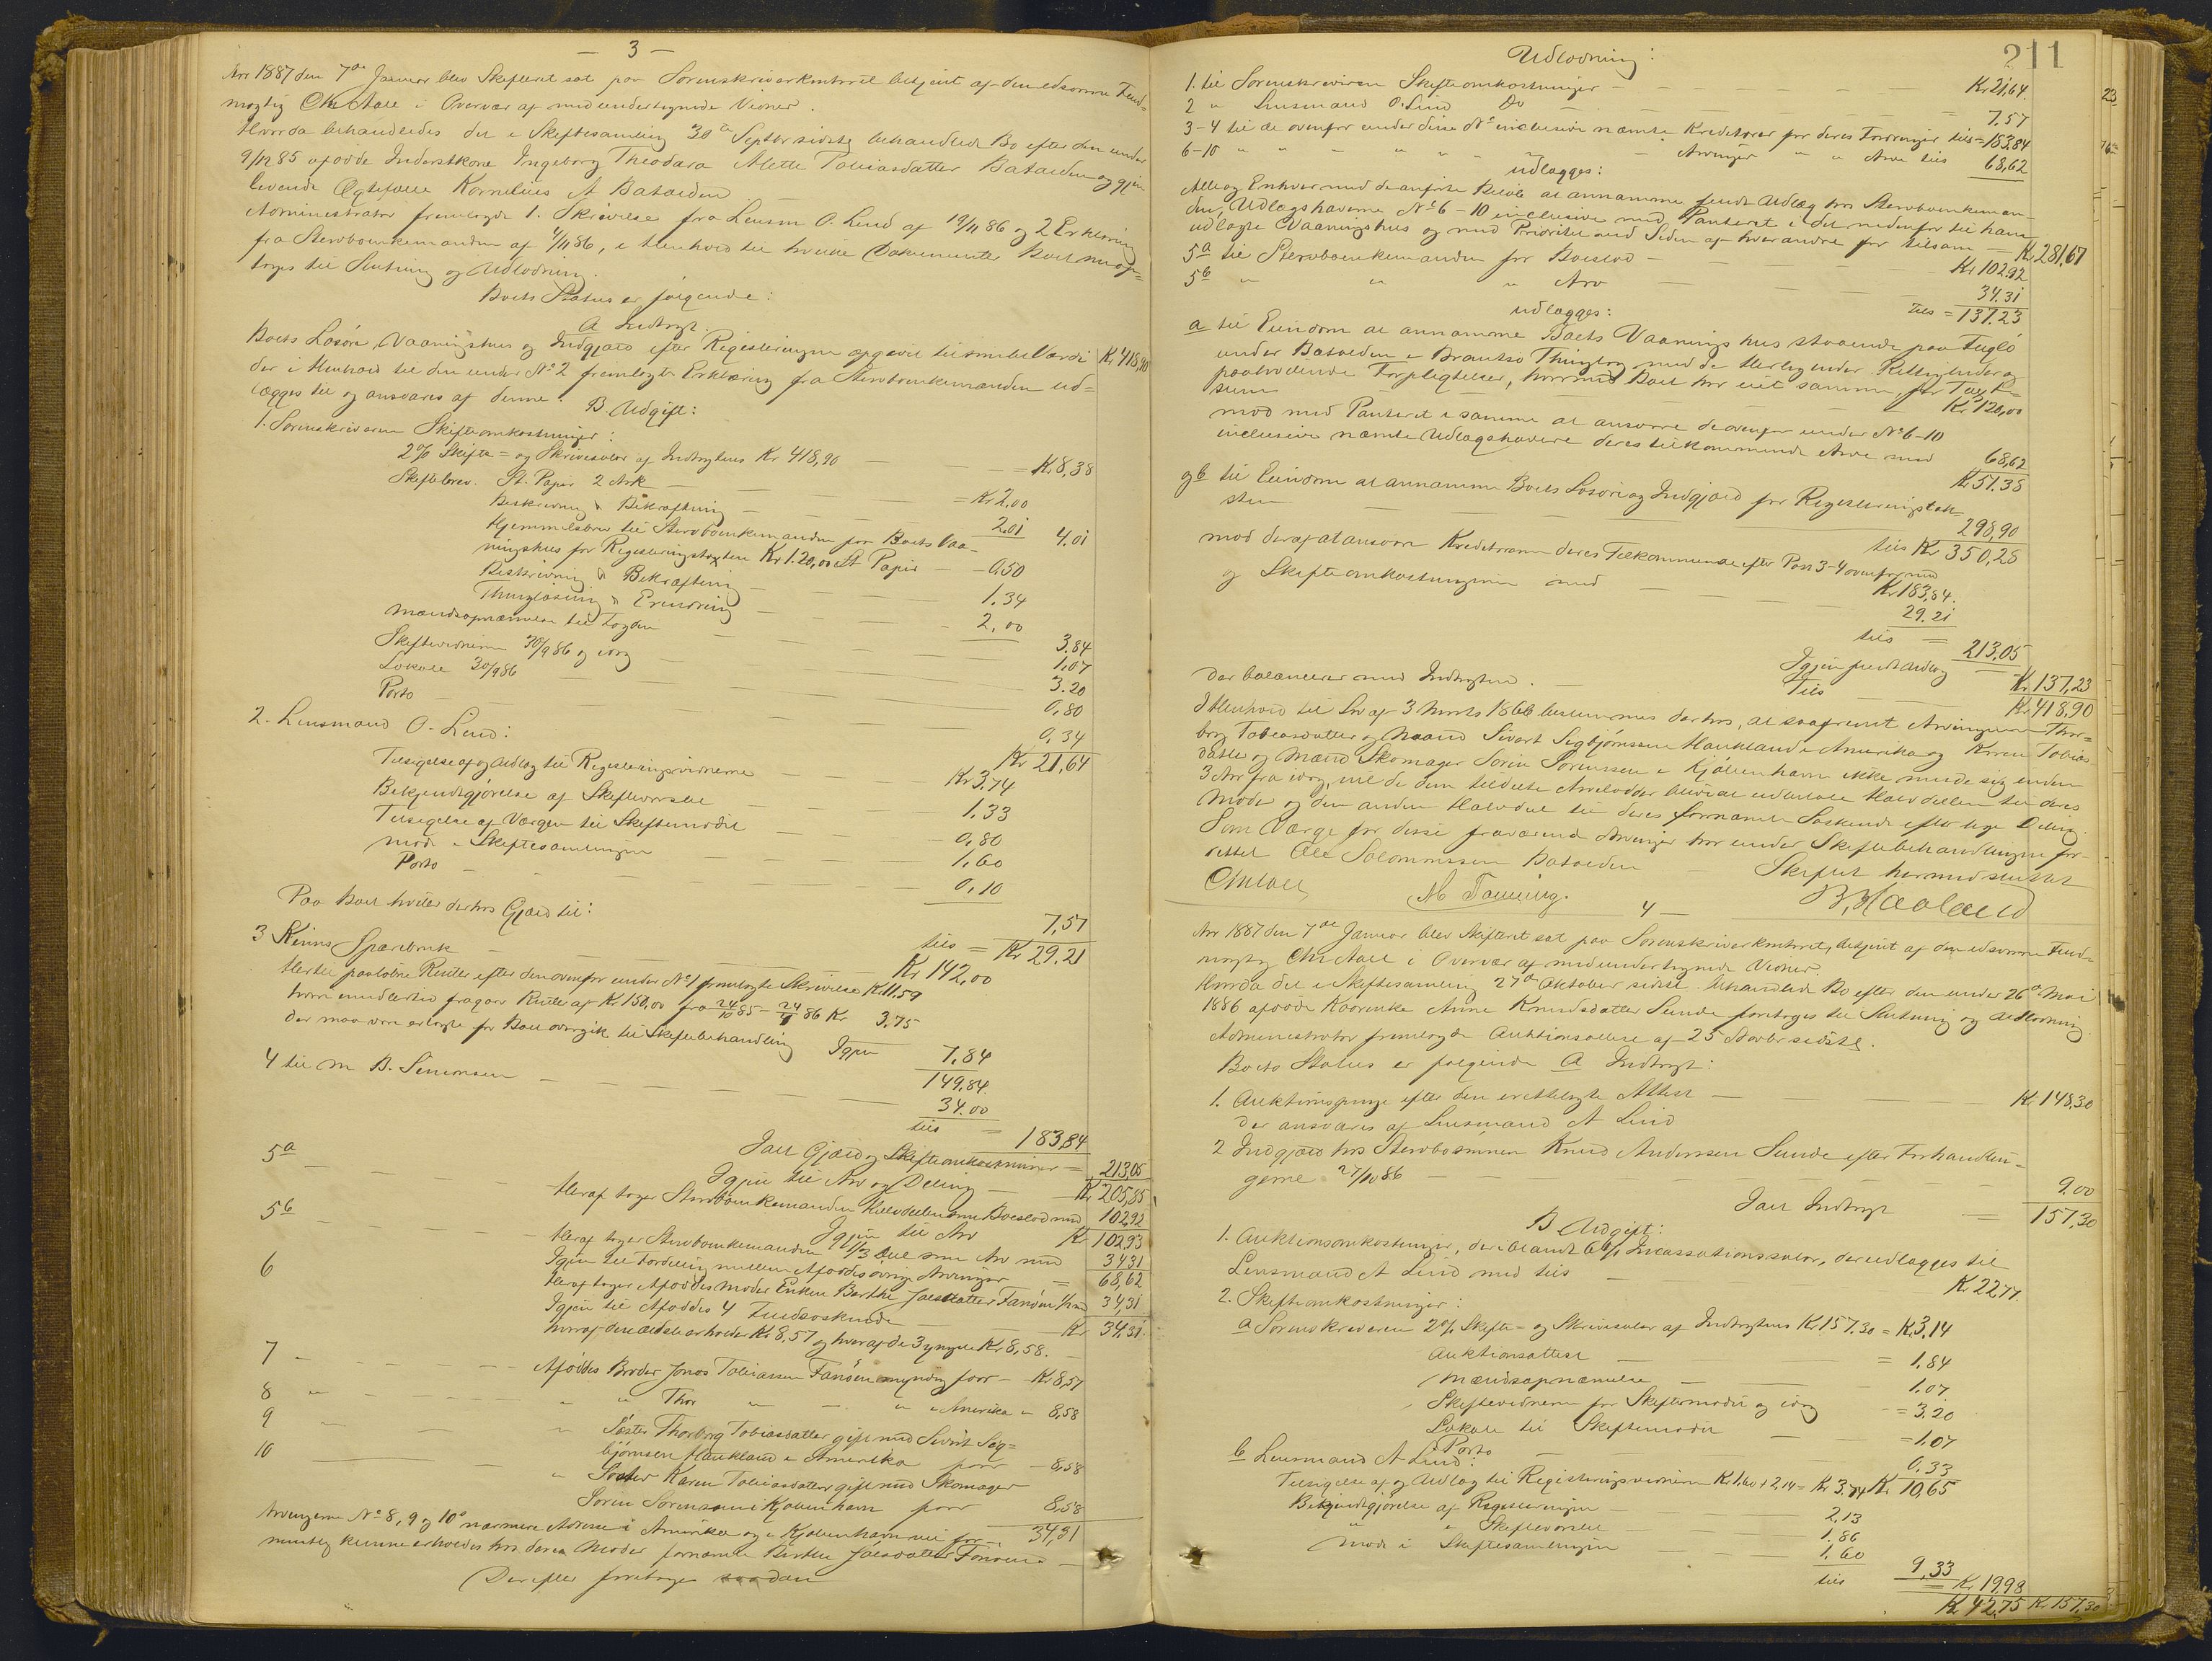 - 3 -
Aar 1887 den 7de Januar blev Skifteret sat paa Sorenskriverkontoret betjent af den edsorne Fuld-
mægtig Chr Aall i Overvær af medundertegnede Vidner.
Hvorda behandledes det i Skiftesamling 30te Septbr sidste behandlede Bo efter den under
9/12 85 afdøde Inderstkone Ingeborg Theodara Alette Tobiasdatter Batalden og gjen-
levende Ægtefælle Kornelius A Batalden
Administrator fremlagde 1. Skrivelse fra Lensm O. Lind af 19/11 86 og 2 Erklæring
fra Stervboenkemanden af 4/11 86, i Henhold til hvilke Dokumenter Boet nu op=
toges til Slutning og Udlodning.
Boets Status er følgende:
A Indtægt.
Boets Løsøre, Vaaningshus og Indgjæld efter Registeringen opgivet tilsmls Værdi Kr 418,90
der i Henhold til den under No 2 fremlagte Erklæring fra Stervboenkemanden ud=
lægges til og ansvares af denne.
B. Udgift:
1. Sorenskriveren Skifteomkostninger:
2% Skifte= og Skriversalær af Indtægtens Kr 418,90 — = Kr 8,38
Skiftebrev. St. Papir 2 Ark — = Kr 2,00
Beskrivning & Bekræftning — 2.01 4,01
Hjemmelsbrev til Stervboenkemanden paa Boets Vaa-
ningshus for Registeringstaxten Kr 120,00 St Papir — 0,50
Beskrivning & Bekræftning — 1.34
Thinglæsning & Erindring — 2,00
3.84
Mændsopnævnelse til Fogden — 1,07
Skiftevidnerne 30/9 86 og idag — 3.20
Lokale 30/9 86 — 0,80
Porto — 0,34
Kr 21,64
2. Lensmand O. Lind:
Tilsigelse af og Udlæg til Registeringsvidnerne — Kr 3.74
Bekjendtgjørelse af Skiftevarslet — 1.33
Tilsigelse af Værgen til Skiftemødet — 0,80
Møde i Skiftesamlingen — 1,60
Porto — 0,10
7,57
tils = Kr 29.21
Paa Boet hviler derhos Gjæld til:
3 Kinns Sparebank — Kr 142,00
Hertil paaløbne Renter efter den ovenfor under No 1 fremlagte Skrivelse Kr 11.59
hvori imidlertid fragaar Renter af Kr 150,00 fra 24/10 85 - 24/4 86 Kr 3,75
der maa være erlagte før Boet overgik til Skiftebehandling Igjen 7,84
149,84.
4 til M B. Simonsen — 34.00
tils = 183,84
Ialt Gjæld og Skifteomkostninger = 213,05
Igjen til Arv og Deling — Kr 205,85
5a — Heraf tager Stervboenkemanden Halvdelen som Boeslod med 102,92
Igjen til Arv Kr 102,93
5b — Heraf tager Stervboenkemanden 1/3 Del som Arv med 34.31
Igjen til Fordeling mellem Afdødes øvrige Arvinger = 68,62
6 Heraf tager Afdødes Moder Enken Berthe Joesdatter Fanøen 1/2 med 34,31
Igjen til Afdødes 4 Fuldsøskende — Kr 34,31
hvoraf den ældste erholder Kr. 8,57 og hver af de 3 yngre Kr 8,58.
7 — Afdødes Broder Jonas Tobiassen Fanøen myndig faar — Kr 8,57
8 " — " " Thor " — " i Amerika " 8,58
9 — " Søster Thorborg Tobiasdatter gift med Sivert Sig=
bjørnsen Haukland i Amerika faar — 8,58
10 — " Søster Karen Tobiasdatter gift med Skomager
Søren Sørensen i Kjøbenhavn faar 8,58
34,31
Arvingerne No 8, 9 og 10s nærmere Adresse i Amerika og i Kjøbenhavn vil for-
mentlig kunne erholdes hos deres Moder fornævnte Berthe Joesdatter Fanøen. —
Derefter foretoges saadan
211
Udlodning:
1. til Sorenskriveren Skifteomkostninger — Kr 21,64.
2 " Lensmand O. Lind Do — 7,57
3-4 til de ovenfor under disse No inclusive nævnte Kreditorer for deres Fordringer tils = 183,84
6-10 " " — " " — Arvinger " " Arv tils 68,62
udlægges:
Alle og Enhver med de anførte Beløb at annamme fuldt Udlæg hos Stervboenkeman-
den, Udlægshaverne No 6-10 inclusive med Panteret i det nedenfor til ham
udlagte Vaaningshus og med Prioritet ved Siden af hverandre for tilsam — Kr 281,67
5a til Stervboenkemanden for Boeslod — Kr 102,92
5b " " " Arv — 34.31
Tils = 137.23
udlægges:
a til Eiendom at annamme Boets Vaanings hus staaende paa Fuglø
under Batalden i Brantsø Thinglag med de Hertil hørende Rettigheder og
paahvilende Forpligtelser, hvormed Boet har eiet samme, for Taxt-
sum — Kr 120,00
mod med Panteret i samme at ansvare de ovenfor under No 6-10
inclusive nævnte Udlægshavere deres tilkommende Arv med 68,62
Kr 51.38
og b til Eiendom at annamme Boets Løsøre og Indgjæld for Registeringstax-
sten — 298,90
tils Kr 350,28
mod deraf at ansvare Kreditorerne deres Tilkommende efter Post 3-4 ovenfor med
Kr 183,84.
og Skifteomkostningerne med — 29.21
tils = 213,05
Igjen fuldt Udlæg — Kr 137,23
der balancerer med Indtægten. Tils — Kr 418,90
I Henhold til Lov af 3 Marts 1866 bestemmes derhos, at saafremt Arvingerne Thor-
borg Tobiasdatter og Mand Sivert Sigbjørnsen Haukland i Amerika og Karen Tobias-
datter og Mand Skomager Søren Sørensen i Kjøbenhavn ikke melde sig inden
3 Aar fra idag, vil de dem tildelte Arvelodder blive at udbetale Halvdelen til deres
Moder og den anden Halvdel til deres fornævnte Søskende efter lige Deling.
Som Værge for disse fraværende Arvinger har under Skiftebehandlingen for-
rettet Ole Salamonsen Batalden Skiftet hermed sluttet
Chr Aall A Tønning. B, Haaland
4 —
Aar 1887 den 7de Januar blev Skifteret sat paa Sorenskriverkontoret, betjent af den edsorne Fuld-
mægtig Chr Aall i Overvær af medundertegnede Vidner.
Hvorda det i Skiftesamling 27de Oktober sidst. behandlede Bo efter den under 26de Mai
1886 afdøde Kaarenke Anne Knudsdatter Sunde foretoges til Slutning og Udlodning
Administrator fremlagde Auktionsattest af 25 Novbr sidstl.
Boets Status er følgende A Indtægt:
1. Auktionspenge efter den irettelagte Attest — Kr 148,30
der ansvares af Lensmand A Lind
2 Indgjæld hos Stervbosønnen Knud Andersen Sunde efter Forhandlin-
gerne 27/10 86 — 9.00
Ialt Indtægt = 157,30
B Udgift:
1. Auktionsomkostninger, deriblandt 6% Incassationssalær, der udlægges til
Lensmand A Lind med tils — Kr 22,77.
2. Skifteomkostninger:
a Sorenskriveren 2% Skifte= og Skriversalær af Indtægtens Kr 157.30 = Kr 3,14
Auktionsattest — = 1,84
Mændsopnævnelse — 1.07
Skiftevidnerne for Skiftemødet og idag = 3.20
Lokale til Skiftemødet — = 1,07
Porto — 0,33
Kr 10,65
b Lensmand A Lind:
Tilsigelse af og Udlæg til Registeringsvidnerne Kr 1,60 + 2,14 = Kr 3,74
Bekjendtgjørelse af Registeringen — 2,13
" " Skiftevarslet — 1.86
Møde i Skiftesamlingen — 1.60
9,33
tils = Kr 19,98
Kr 42,75 Kr 157,30